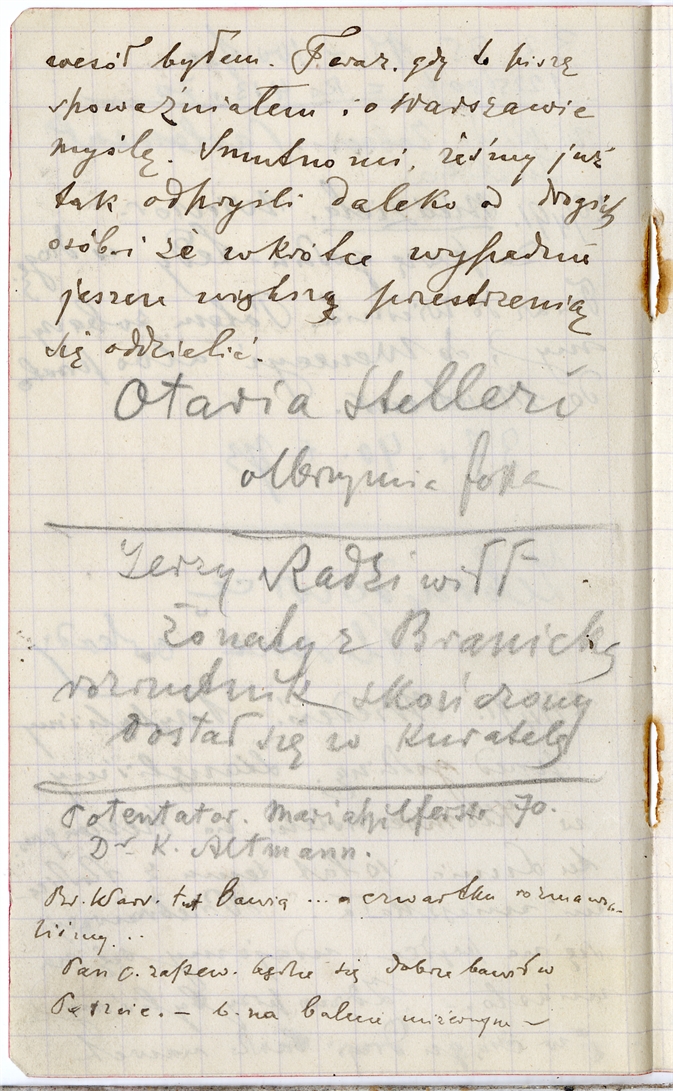 wesół byłem. Teraz, gdy to piszę
spoważniałem i o Warszawie
myślę. Smutno mi, żeśmy już
tak odbyli daleko od drogich
osób i że wkrótce wypadnie
jeszcze większą przestrzenią
się oddzielić.
Otaria Stelleri
olbrzymia foka
Jerzy Radziwiłł
żonaty z Branicką
rozrzutnik skończony
dostał się w kuratelę
Potentator. Mariahilferstr 70.
Dr K. Altmann.
Br. Warv. tut bawią ... o czwartku rozmawia-
liśmy...
Pan c. zapew. będzie się dobrze bawił w
– b. na balu